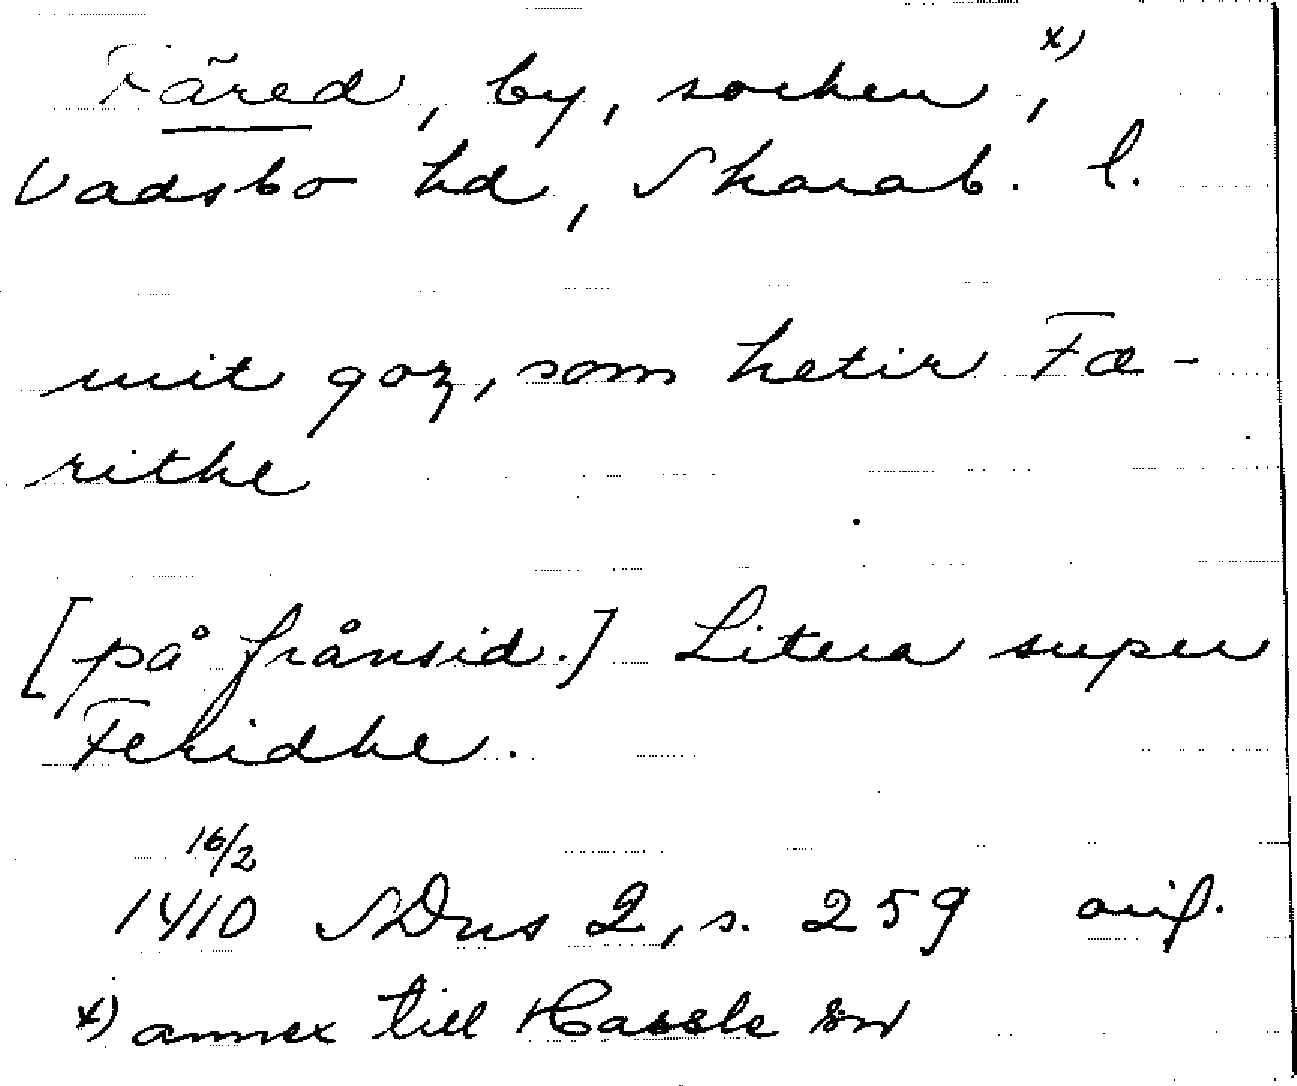 Färed, by, socken, x)
Vadsbo hd, Skarab. l.
mit goz, som hetir Fæ-
rithe
[på frånsid.] Litera super
Feridhe.
16/2
1410 SDns 2, s. 259 orig.
x) annex till Hassle sn